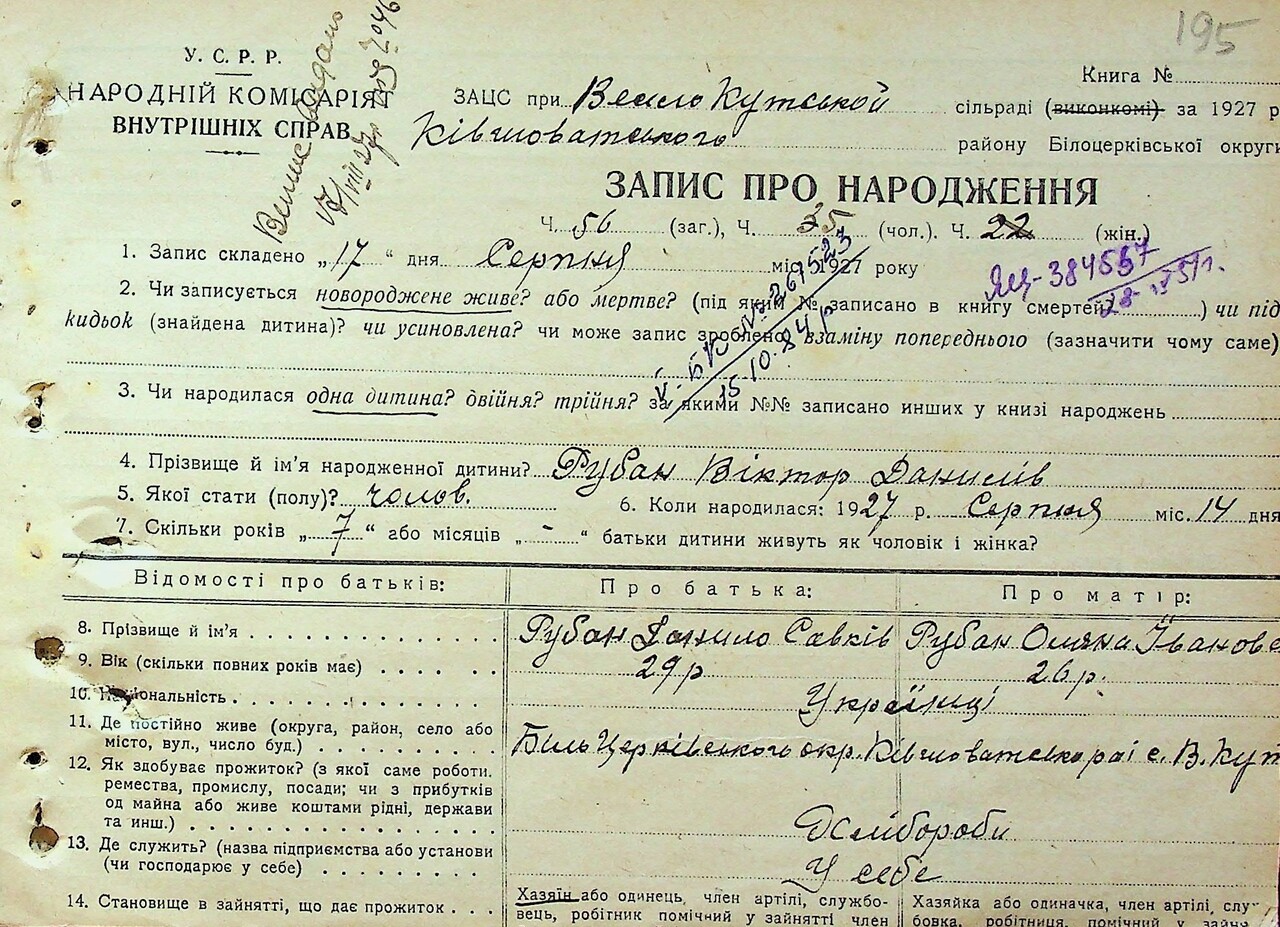 195
У. С. Р. Р.
НАРОДНІЙ КОМІСАРІЯТ
ВНУТРІШНІХ СПРАВ
Книга №
ЗАЦС при Весило Кутської сільраді (виконкомі) за 1927 р
Ківшоватського району Білоцерківської округи
ЗАПИС ПРО НАРОДЖЕННЯ
Ч. 56 (заг.), Ч. 35 (чол.). Ч. 22 (жін.)
1. Запис складено „17" дня Серпня міс. 1927 року
2. Чи записується новороджене живе? або мертве? (під яким № записано в книгу смертей) чи під
кидьок (знайдена дитина)? чи усиновлена? чи може запис зроблено взаміну попереднього (зазначити чому саме)
3. Чи народилася одна дитина? двійня? трійня? за якими №№ записано инших у книзі народжень
4. Прізвище й ім'я народженної дитини? Рубан Віктор Данилів
5. Якої стати (полу)? чолов. 6. Коли народилася: 1927 р. Серпня міс. 14 дня
7. Скільки років „7" або місяців „-" батьки дитини живуть як чоловік і жінка?
Відомості про батьків: Про батька: Про матір:
8. Прізвище й ім'я Рубан Данило Савків Рубан Оляна Іванове
9. Вік (скільки повних років має) 29 р 26 р.
10. Національність Українці
11. Де постійно живе (округа, район, село або
місто, вул., число буд.) Біль Церківського окр. Ківшоватськ раі с. В. Кут
12. Як здобуває прожиток? (з якої саме роботи,
ремества, промислу, посади; чи з прибутків
од майна або живе коштами рідні, держави
та инш.) Хлібороби
13. Де служить? (назва підприємства або установи
(чи господарює у себе) У себе
14. Становище в зайнятті, що дає прожиток
Хазяїн або одинець, член артілі, службо-
вець, робітник помічний у зайнятті член
Хазяйка або одиначка, член артілі, слу
бовка, робітниця, помічна у зайня